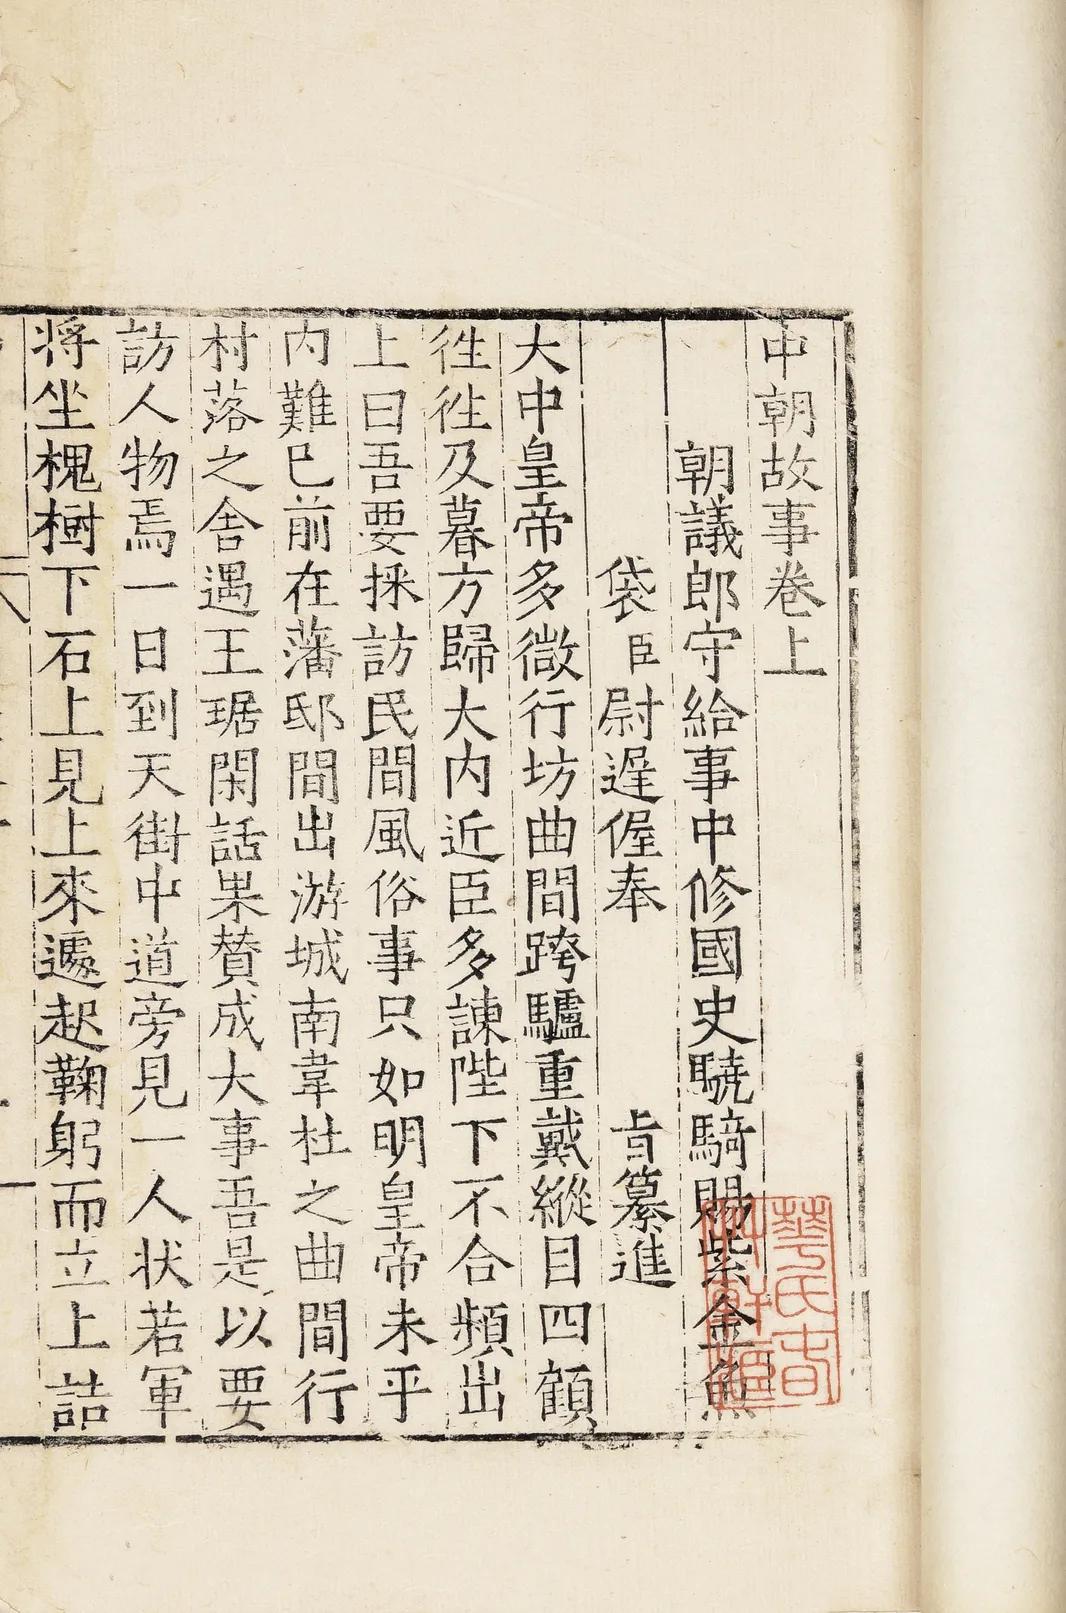 中朝故事卷上
朝議郎守給事中修國史驍騎賜紫金魚
袋臣尉遲偓奉 旨纂進
大中皇帝多微行坊曲間跨驢重戴縱目四顧
徃徃及暮方歸大内近臣多諫陛下不合頻出
上曰吾要採訪民間風俗事只如明皇帝未平
内難已前在藩邸間出游城南韋杜之曲間行
村落之舍遇王琚閑話果賛成大事吾是以要
訪人物焉一日到天街中道旁見一人状若軍
将坐槐樹下石上見上來遽起鞠躬而立上詰